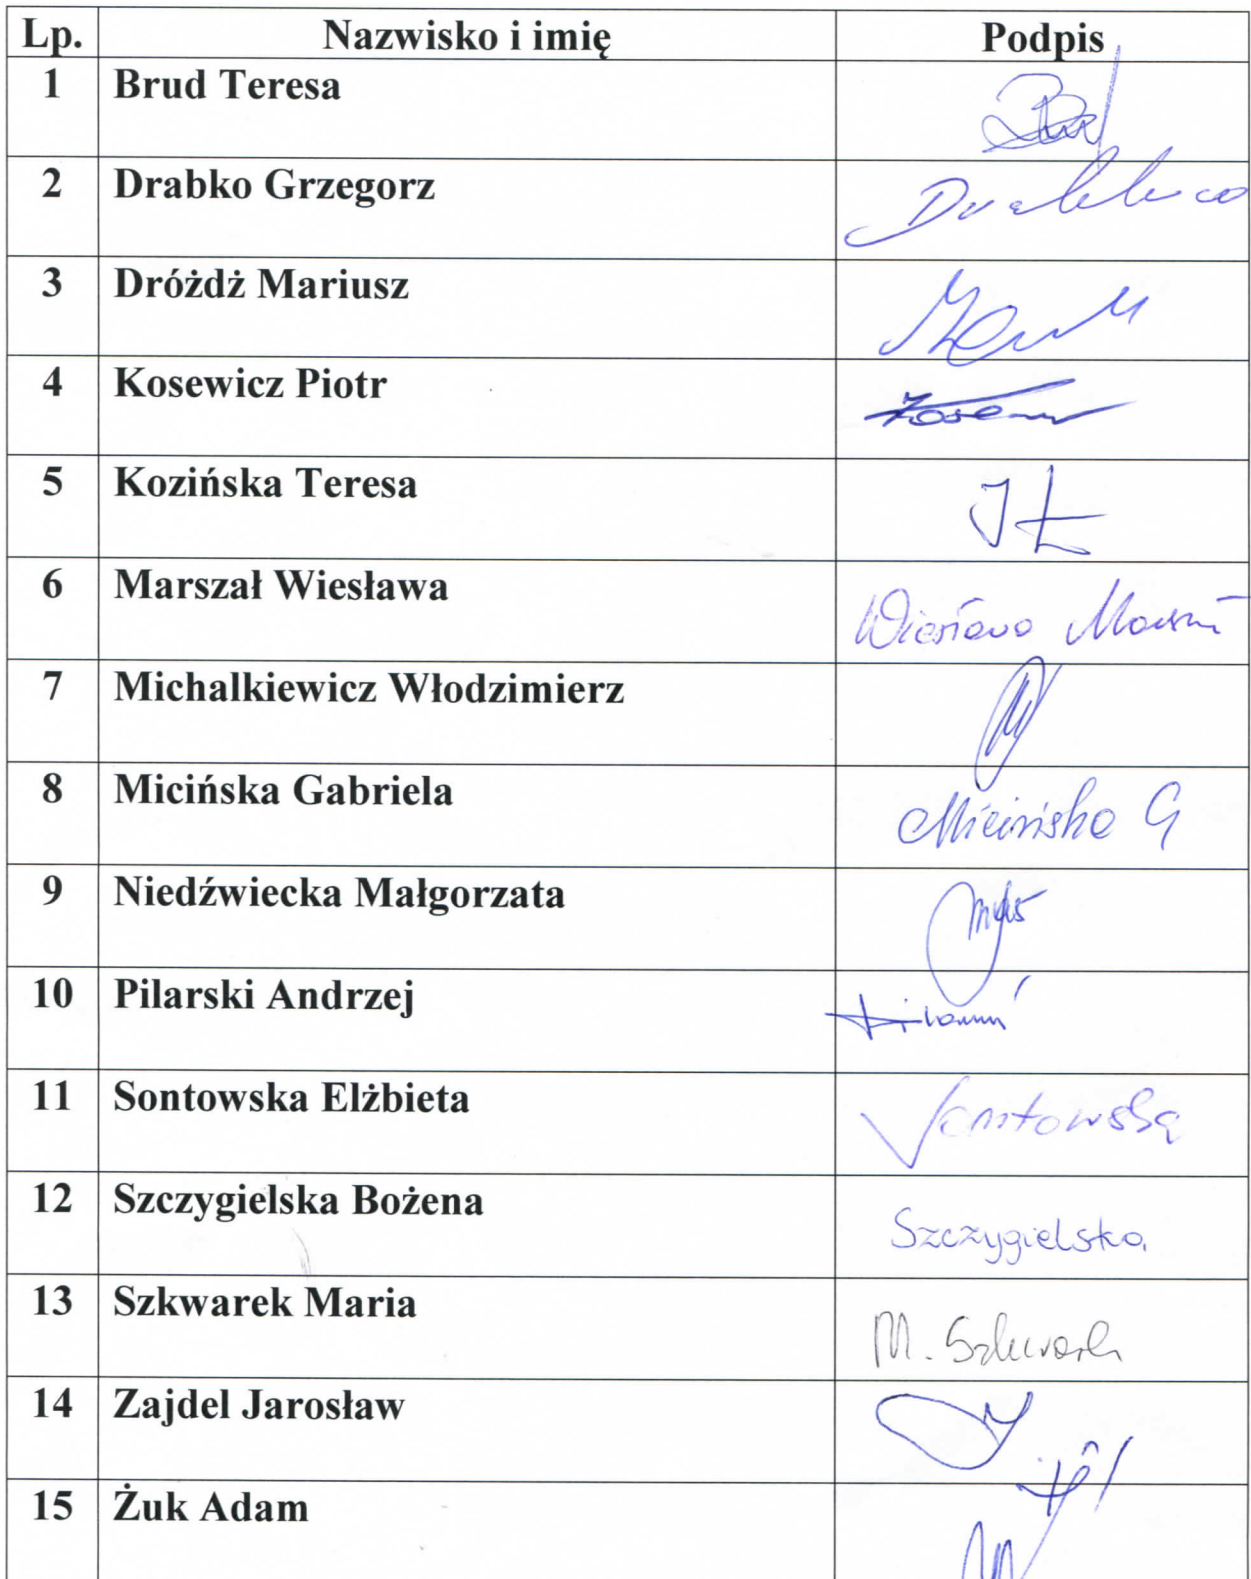 Lp. Nazwisko i imię Podpis
1 Brud Teresa
2 Drabko Grzegorz
3 Dróżdż Mariusz
4 Kosewicz Piotr
5 Kozińska Teresa
6 Marszał Wiesława Wiesława
7 Michalkiewicz Włodzimierz
8 Micińska Gabriela Micińska G
9 Niedźwiecka Małgorzata
10 Pilarski Andrzej
11 Sontowska Elżbieta Sontowska
12 Szczygielska Bożena Szczygielska
13 Szkwarek Maria M. Szkwarek
14 Zajdel Jarosław
15 Żuk Adam